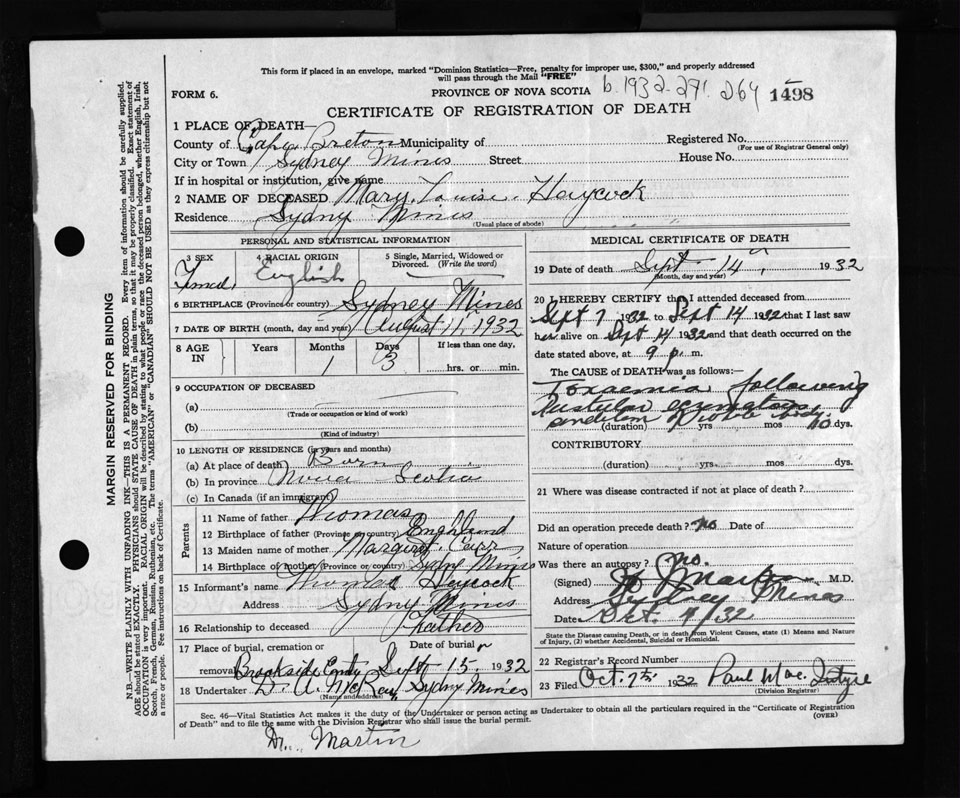 This form if placed in an envelope, marked "Dominion Statistics—Free, penalty for improper use, $300," and properly addressed
will pass through the Mail "FREE"
FORM 6.
PROVINCE OF NOVA SCOTIA
b. 1932. 271. 264
1498
CERTIFICATE OF REGISTRATION OF DEATH
1 PLACE OF DEATH—
County of Cape Breton Municipality of
Registered No.
(For use of Registrar General only)
City or Town Sydney Mines Street House No.
If in hospital or institution, give name
2 NAME OF DECEASED Mary Louise Haycock
Residence Sydny Mines
(Usual place of abode)
PERSONAL AND STATISTICAL INFORMATION
3 SEX
4 RACIAL ORIGIN English
5 Single, Married, Widowed or Divorced. (Write the word)
6 BIRTHPLACE (Province or country) Sydney Mines
7 DATE OF BIRTH (month, day and year) August 11, 1932
8 AGE IN Years Months 1 Days 3 If less than one day, hrs. or min.
9 OCCUPATION OF DECEASED
(a)
(Trade or occupation or kind of work)
(b)
(Kind of industry)
10 LENGTH OF RESIDENCE (in years and months)
(a) At place of death Born
(b) In province Nova Scotia
(c) In Canada (if an immigrant)
Parents
11 Name of father Thomas
12 Birthplace of father (Province or country) England
13 Maiden name of mother Margaret Carr
14 Birthplace of mother (Province or country) Sydny Mines
15 Informant's name Thomas Heycock
Address Sydny Mines
16 Relationship to deceased Father
17 Place of burial, cremation or removal Brookside Date of burial Sept 15, 1932
18 Undertaker D. A. McRay, Sydny Mines
(Name and address)
MEDICAL CERTIFICATE OF DEATH
19 Date of death Sept 14 1932
(Month, day and year)
20 I HEREBY CERTIFY that I attended deceased from
Sept 7 1932 to Sept 14 1932 that I last saw
her alive on Sept 14 1932 and that death occurred on
date stated above, at 9 p. m.
The CAUSE of DEATH was as follows:—
Toxaemia following
Pustular
condition of whole body.
(duration) yrs mos 10 dys.
CONTRIBUTORY
(duration) yrs mos dys.
21 Where was disease contracted if not at place of death?
Did an operation precede death? no Date of
Nature of operation
Was there an autopsy? no.
(Signed) Martin M.D.
Address Sydney Mines
Date Oct. 1/32
State the Disease causing Death, or in death from Violent Causes, state (1) Means and Nature of Injury, (2) whether Accidental, Suicidal or Homicidal.
22 Registrar's Record Number
23 Filed Oct. 7 1932 Paul MacIntyre
(Division Registrar)
Sec. 46—Vital Statistics Act makes it the duty of the Undertaker or person acting as Undertaker to obtain all the particulars required in the "Certificate of Registration
of Death" and to file the same with the Division Registrar who shall issue the burial permit.
(OVER)
Dr. Martin
MARGIN RESERVED FOR BINDING
N.B.—WRITE PLAINLY WITH UNFADING INK—THIS IS A PERMANENT RECORD. Every item of information should be carefully supplied.
AGE should be stated EXACTLY. PHYSICIANS should STATE CAUSE OF DEATH in plain terms, so that it may be properly classified. Exact statement of
OCCUPATION is very important. RACIAL ORIGIN will be described by stating to what people or race the deceased person belonged, whether English, Irish,
Scotch, French, German, Russian, Ruthenian, etc. The terms "AMERICAN" or "CANADIAN" SHOULD NOT BE USED as they express citizenship but not
a race or people. See instructions on back of Certificate.